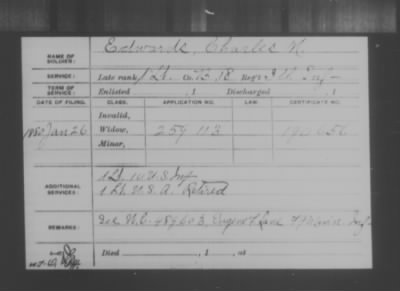 NAME OF SOLDIER: Edwards, Charles N.
SERVICE: Late rank 1 Lt. Co. B, 18 Reg't Inf
TERM OF SERVICE: Enlisted , 1 Discharged , 1
DATE OF FILING. CLASS. APPLICATION NO. LAW. CERTIFICATE NO.
Invalid,
1880 Jan 26 Widow, 259 113 190.656
Minor,
ADDITIONAL SERVICES: 1 Lt. 10 U.S. Inf
1 Lt. U.S.A. Retired
REMARKS: See W.C. 489603, Eugene F. Lane Inf
Died , 1 , at